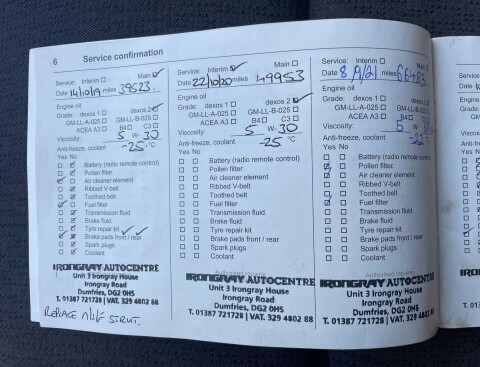 6
Service confirmation
Service: Interim Main
Date 14/10/19 miles 39523
Engine oil
Grade: dexos 1 dexos 2
GM-LL-A-025 GM-LL-B-025
ACEA A3 B4 C3
Viscosity: 5 W- 30
Anti-freeze, coolant -25 °C
Yes No
Battery (radio remote control)
Pollen filter
Air cleaner element
Ribbed V-belt
Toothed belt
Fuel filter
Transmission fluid
Brake fluid
Tyre repair kit
Brake pads front / rear
Spark plugs
Coolant
IRONGRAY AUTOCENTRE
Unit 3 Irongray House
Irongray Road
Dumfries, DG2 0HS
T. 01387 721728 | VAT. 329 4802 88
REPLACE N/S/F STRUT.
Service: Interim Main
Date 22/10/20 miles 49953
Engine oil
Grade: dexos 1 dexos 2
GM-LL-A-025 GM-LL-B-025
ACEA A3 B4 C3
Viscosity: 5 W- 30
Anti-freeze, coolant -25 °C
Yes No
Battery (radio remote control)
Pollen filter
Air cleaner element
Ribbed V-belt
Toothed belt
Fuel filter
Transmission fluid
Brake fluid
Tyre repair kit
Brake pads front / rear
Spark plugs
Coolant
Authorised repairer
IRONGRAY AUTOCENTRE
Unit 3 Irongray House
Irongray Road
Dumfries, DG2 0HS
T. 01387 721728 | VAT. 329 4802 88
Service: Interim Main
Date miles
Engine oil
Grade: dexos 1 dexos 2
GM-LL-A-025 GM-LL-B-025
ACEA A3 B4 C3
Viscosity: 5 W-
Anti-freeze, coolant
Yes No
Battery (radio remote control)
Pollen filter
Air cleaner element
Ribbed V-belt
Toothed belt
Fuel filter
Transmission fluid
Brake fluid
Tyre repair kit
Brake pads front / rear
Spark plugs
Coolant
Authorised repairer
IRONGRAY AUTOCENTRE
Unit 3 Irongray House
Irongray Road
Dumfries, DG2 0HS
T. 01387 721728 | VAT. 329 4802 88